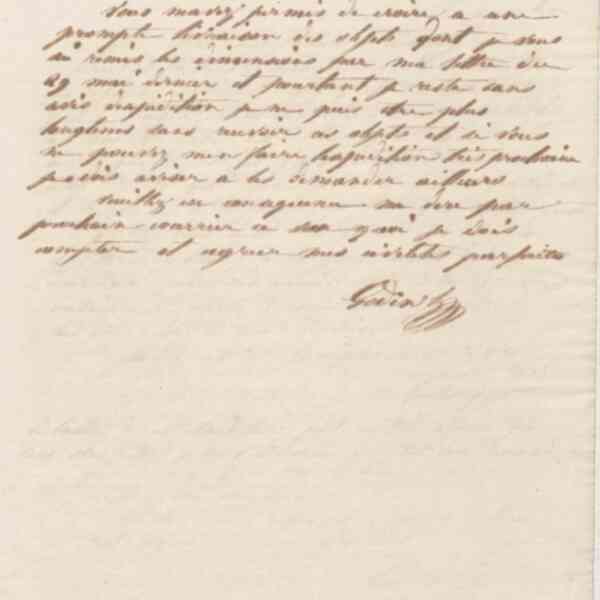 Vous m'avez permis de croire a une
prompte livraison des objets dont je vous
ai remis les dimensions par ma lettre du
29 mai dernier et pourtant je reste sans
avis d'expédition je ne puis etre plus
longtems sans recevoir ces objets et si vous
ne pouvez m'en faire l'expédition très prochaine
je dois aviser a les demander ailleurs
Veuillez en conséquence me dire par
prochain courrier ce sur quoi je dois
compter et agréer mes civilités parfaites
Godin